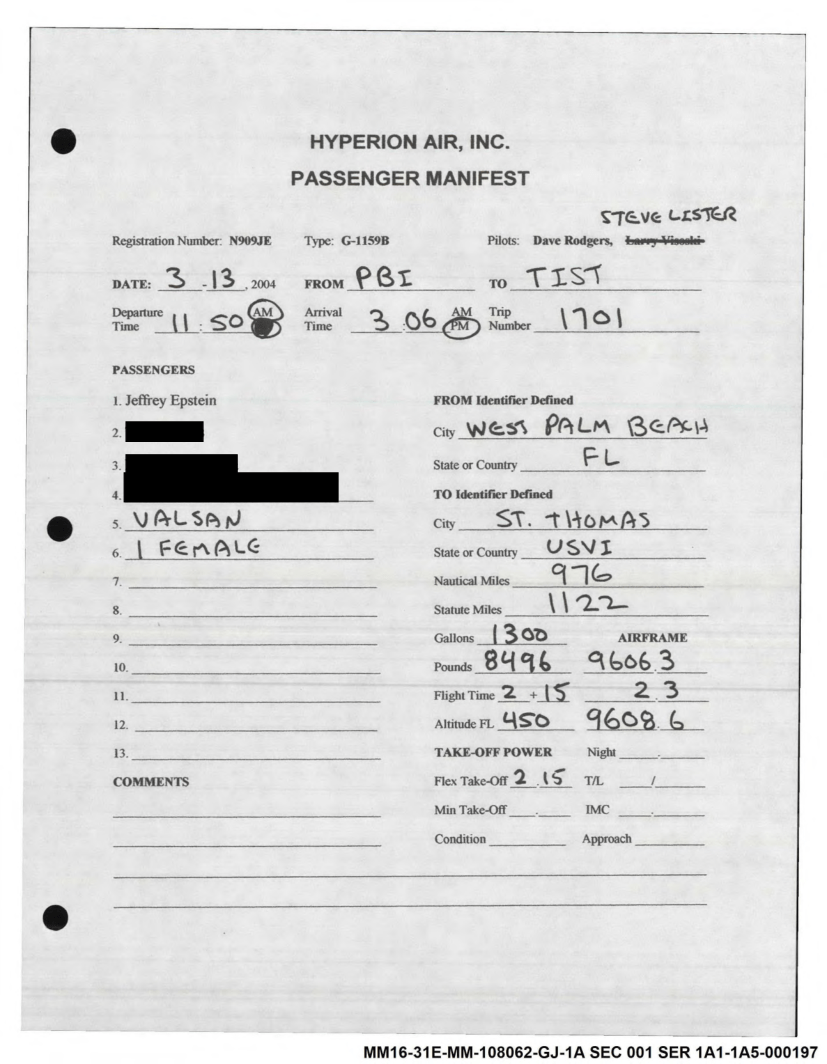 HYPERION AIR, INC.
PASSENGER MANIFEST
STEVE LISTER
Registration Number: N909JE Type: G-1159B Pilots: Dave Rodgers, Larry Visoski
DATE: 3 - 13 , 2004 FROM PBI TO TIST
Departure Time 11 : 50 AM Arrival Time 3 : 06 AM PM Trip Number 1701
PASSENGERS
1. Jeffrey Epstein
2.
3.
4.
5. VALSAN
6. 1 FEMALE
7.
8.
9.
10.
11.
12.
13.
COMMENTS
FROM Identifier Defined
City WEST PALM BEACH
State or Country FL
TO Identifier Defined
City ST. THOMAS
State or Country USVI
Nautical Miles 976
Statute Miles 1122
Gallons 1300 AIRFRAME
Pounds 8496 9606.3
Flight Time 2 + 15 2.3
Altitude FL 450 9608.6
TAKE-OFF POWER Night .
Flex Take-Off 2.15 T/L /
Min Take-Off . IMC .
Condition Approach
MM16-31E-MM-108062-GJ-1A SEC 001 SER 1A1-1A5-000197